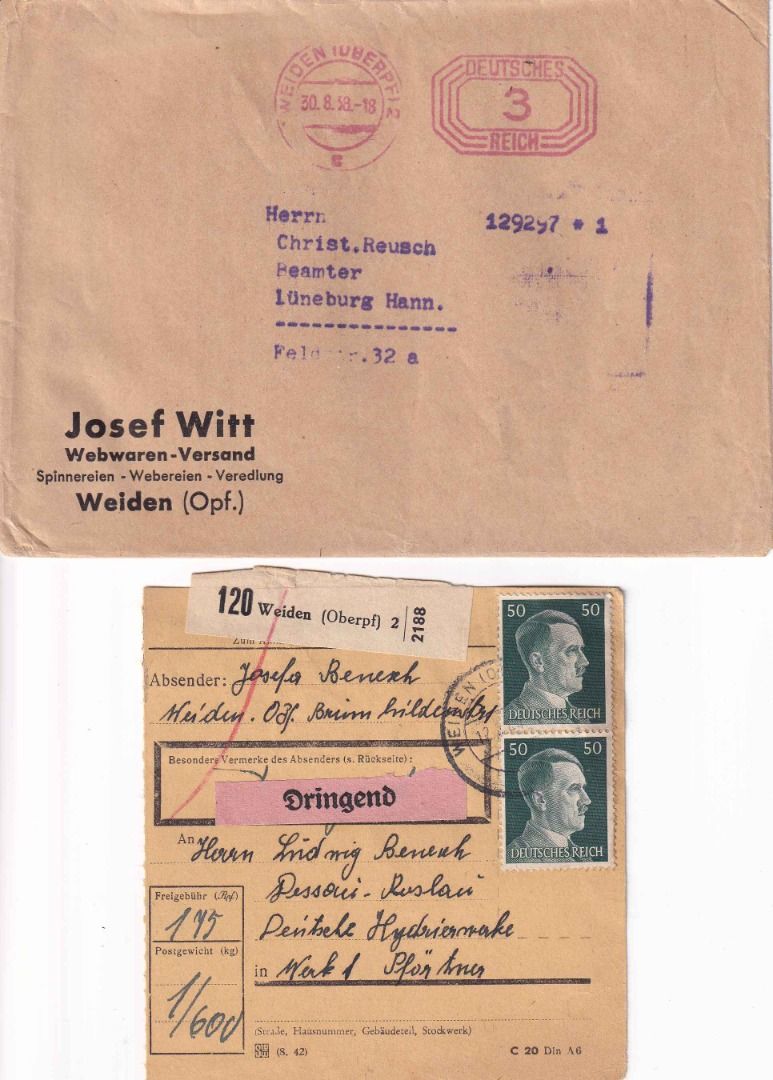 WEIDEN (OBERPF) 2
30.8.38.-18
DEUTSCHES
3
REICH
Herrn
Christ.Reusch
Beamter
lüneburg Hann.
129297 * 1
32 a
Josef Witt
Webwaren-Versand
Spinnereien - Webereien - Veredlung
Weiden (Opf.)
120 Weiden (Oberpf) 2
2188
Absender: Josefa Benesch
Weiden. Opf. Brunhildenstr
Besondere Vermerke des Absenders (s. Rückseite):
Dringend
An Herrn Ludwig Benesch
Dessau-Roslau
Deutsche Hydrierwerke
in Werk 1 Pförtner
Freigebühr (Rpf)
175
Postgewicht (kg)
1/600
(Straße, Hausnummer, Gebäudeteil, Stockwerk)
(8. 42)
C 20 Din A6
50 50
DEUTSCHES REICH
50 50
DEUTSCHES REICH
WEIDEN (O